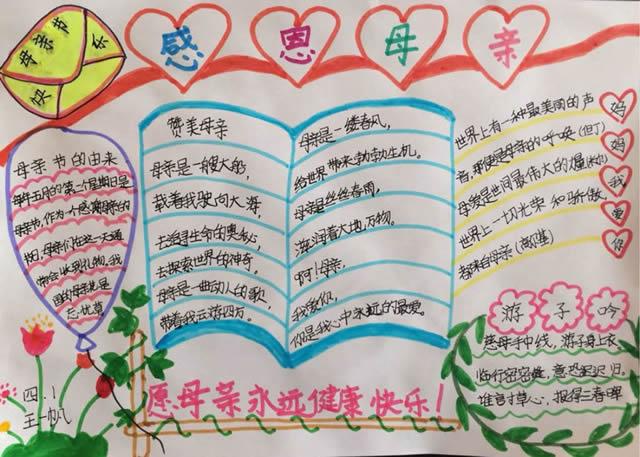 母亲节快乐
感恩母亲
母亲节的由来
每年五月的第一个星期日是
母亲节,作为一个感恩母亲的
节日,母亲们在这一天通
常会收到礼物,我
国的母亲花是
忘忧草。
赞美母亲
母亲是一艘大船,
载着我驶向大海,
去追寻生命的奥秘,
去探索世界的神奇,
母亲是一曲动人的歌,
带着我云游四方。
母亲是一缕春风,
给世界带来勃勃生机。
母亲是丝丝春雨,
滋润着大地万物。
啊!母亲,
我爱你,
你是我心中永远的最爱。
世界上有一种最美丽的声
音,那便是母亲的呼唤(但丁)
母爱是世间最伟大的力量
世界上一切光荣和骄傲,
都来自母亲(高尔基)
妈
妈
我
爱
你
游子吟
慈母手中线,游子身上衣
临行密密缝,意恐迟迟归,
谁言寸草心,报得三春晖
愿母亲永远健康快乐!
四.1
王一帆